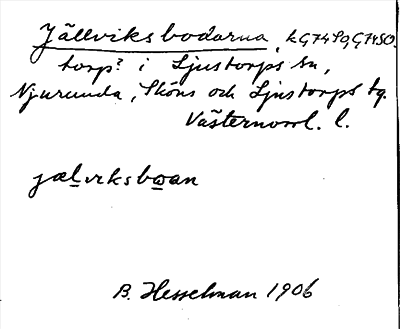 Jällviksbodarna, kG74SqG74SO.
torp? i Ljustorps sn,
Njurunda, Sköns och Ljustorps tg.
Västernorrl. l.
jælviksbwan
B. Hesselman 1906